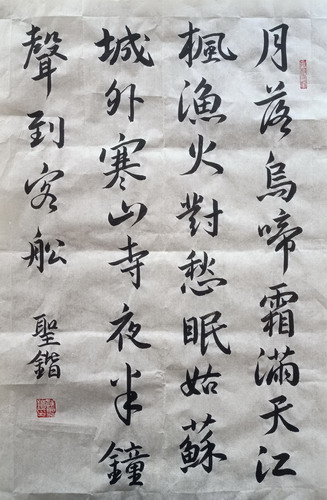 月落烏啼霜滿天江
楓漁火對愁眠姑蘇
城外寒山寺夜半鐘
聲到客船
聖鍇